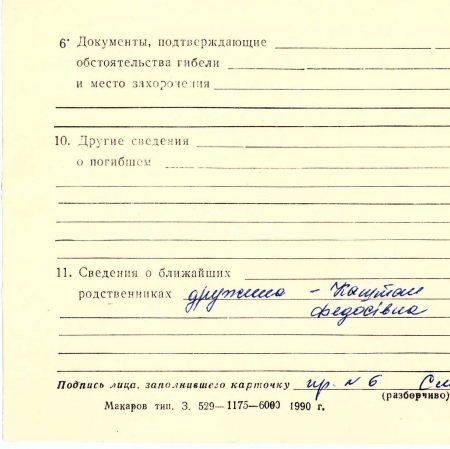 6· Документы, подтверждающие
обстоятельства гибели
и место захоронения
10. Другие сведения
о погибшем
11. Сведения о ближайших
родственниках дружина – Каштан
Федосівна
Подпись лица, заполнившего карточку пр. N 6 См
(разборчиво)
Макаров тип. З. 529—1175—6000 1990 г.